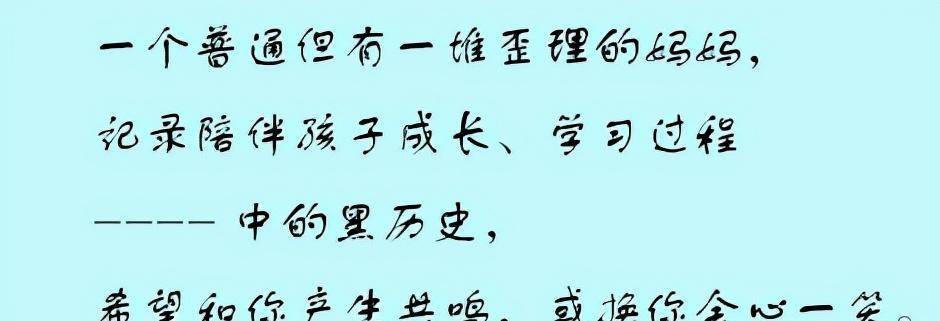 一个普通但有一堆歪理的妈妈，
记录陪伴孩子成长、学习过程
---- 中的黑历史，
希望和你产生共鸣，或换你会心一笑。